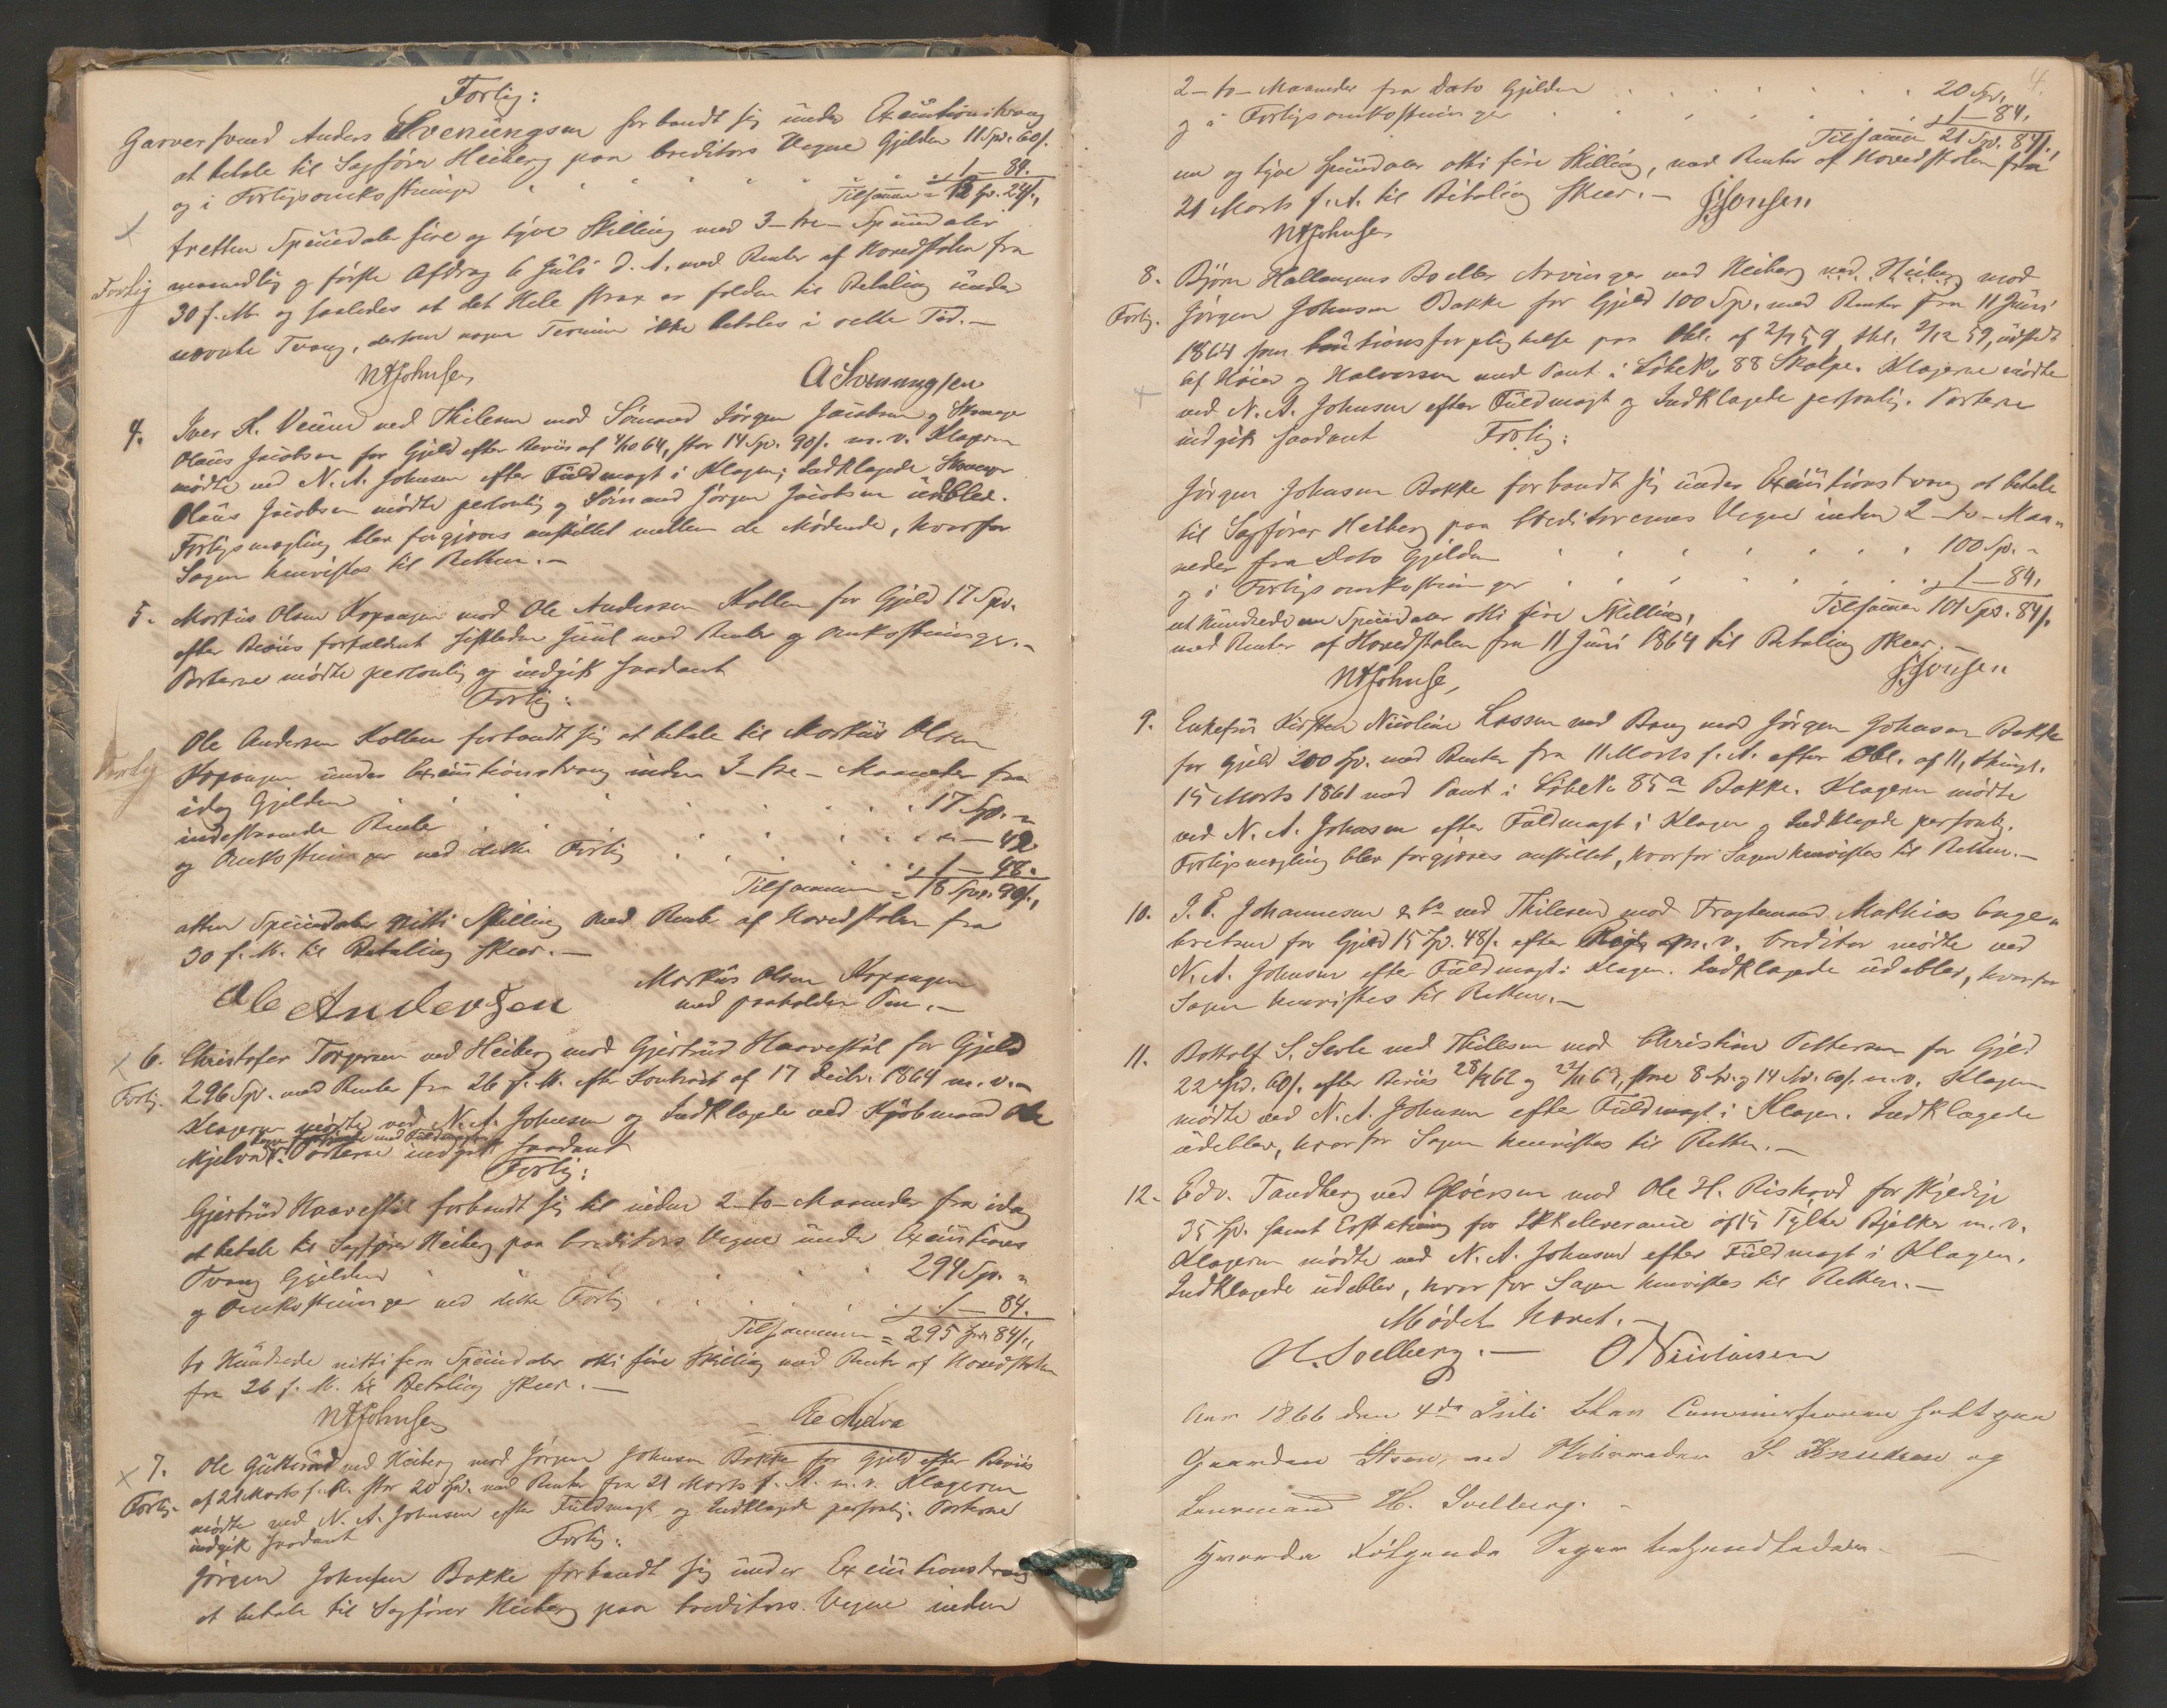 Forlig:
Garversvend Anders Svenungsen forbandt sig under Executionstvang
at betale til Sagfører Heiberg paa Creditors Vegne Gjelden 11 Spd. 60 s.
og i Forligsomkostninger " 1 — 84.
Tilsammen = 13 Sp. 24 s.,
tretten Speciedaler fire og tyve Skilling med 3-tre- Speciedaler
maanedlig og første Afdrag 6 Juli d. A. med Renter af Hovedstolen fra
Forlig
30 f. M. og saaledes at det Hele strax er falden til Betaling under
nævnte Tvang, dersom nogen Termin ikke betales i rette Tid.—
NAJohnsen A Svenungsen
4. Iver H. Veium ved Thilesen mod Sømand Jørgen Jacobsen og
Olaus Jacobsen for Gjeld efter Beviis af 64, stor 14 Sp. 90 s. m. v. Klageren
mødte ved N. A. Johnsen efter Fuldmagt i Klagen; Indklagede
Olaus Jacobsen mødte personlig og Sømand Jørgen Jacobsen udblev.
Forligsmægling blev forgjæves anstillet mellem de Mødende, hvorfor
Sagen henvistes til Retten.—
5. Markus Olsen Kopangen mod Ole Andersen Kollen for Gjeld 17 Spd.
efter Beviis forfaldent sidstleden Juul med Renter og Omkostninger.—
Parterne mødte personlig og indgik saadant
Forlig:
Ole Andersen Kollen forbandt sig at betale til Markus Olsen
Forlig
Kopangen under Executionstvang inden 3-tre- Maaneder fra
idag Gjelden 17 Sp. "
indestaaende Renter " — 42
og Omkostninger ved dette Forlig " 1 — 48.
Tilsammen = 18 Spd. 90 s.,
atten Speciedaler nitti Skilling med Renter af Hovedstolen fra
30 f. M. til Betaling skeer.—
Ole Andersen Markus Olsen Kopangen
med paaholden Pen.—
6. Christofer Torgersen ved Heiberg mod Gjertrud Haavestul for Gjeld
Forlig.
296 Sp. med Renter fra 26 f. M. efter Kontract af 17 Decbr. 1864 m. v.—
Klageren mødte ved N. A. Johnsen og Indklagede ved Kjøbmand Ole
med Fuldmagt
Mjelva. Parterne indgik saadant
Forlig:
Gjertrud Haavestul forbandt sig til inden 2-to- Maaneder fra idag
at betale til Sagfører Heiberg paa Creditors Vegne under Executions
Tvang Gjelden 294 Sp. "
og Omkostninger ved dette Forlig " 1 — 84.
Tilsammen = 295 Sp. 84 s.,
to Hundrede nitti fem Speciedaler otti fire Skilling med Renter af Hovedstolen
fra 26 f. M. til Betaling skeer.—
NAJohnsen Ole Mjelva
7. Ole Gutterud ved Heiberg mod Jørgen Johnsen Bakke for Gjeld efter Beviis
Forlig.
af 21 Marts f. A. stor 20 Sp. med Renter fra 21 Marts f. A. m. v. Klageren
mødte ved N. A. Johnsen efter Fuldmagt og Indklagede personlig. Parterne
indgik saadant Forlig:
Jørgen Johnsen Bakke forbandt sig under Executionstvang
at betale til Sagfører Heiberg paa Creditors Vegne inden
4.
2-to- Maaneder fra Dato Gjelden 20 Sp.
og i Forligsomkostninger " 1 — 84.
Tilsammen 21 Sp. 84 s.,
en og tyve Speciedaler otti fire Skilling, med Renter af Hovedstolen fra
21 Marts f. A. til Betaling skeer.— J. Jonsen
NAJohnsen
8. Bjørn Hallangens Bo eller Arvinger ved Heiberg ved Heiberg mod
Forlig.
Jørgen Johnsen Bakke for Gjeld 100 Sp. med Renter fra 11 Juni
1864 som Cautionsforpligtelse paa Obl. af 59, thl. 2/12 59, udstedt
af Høier og Halvorsen med Pant i LøbeNo 88 Skolpe. Klagerne mødte
ved N. A. Johnsen efter Fuldmagt og Indklagede personlig. Parterne
indgik saadant Forlig:
Jørgen Johnsen Bakke forbandt sig under Executionstvang at betale
til Sagfører Heiberg paa Creditorernes Vegne inden 2-to- Maa-
neder fra Dato Gjelden 100 Sp. "
og i Forligsomkostninger " 1 — 84.
et Hundrede en Speciedaler otti fire Skilling, Tilsammen 101 Spd. 84 s.
med Renter af Hovedstolen fra 11 Juni 1864 til Betaling skeer.—
NAJohnsen J. Jonsen
9. Enkefru Kirsten Nicoline Lassen ved Bang mod Jørgen Johnsen Bakke
for Gjeld 200 Sp. med Renter fra 11 Marts f. A. efter Obl. af 11, thingl.
15 Marts 1861 med Pant i LøbeNo 85a Bakke. Klageren mødte
ved N. A. Johnsen efter Fuldmagt i Klagen og Indklagede personlig.
Forligsmægling blev forgjæves anstillet, hvorfor Sagen henvistes til Retten.—
10. J. P. Johannesen & Co ved Thilesen mod Fragtemand Mathias Enge-
bretsen for Gjeld 15 Sp. 48 s. efter m. v. Creditor mødte ved
N. A. Johnsen efter Fuldmagt i Klagen. Indklagede udeblev, hvorfor
Sagen henvistes til Retten.—
11. Bottolf S. ved Thilesen mod Christian Pettersen for Gjeld
22 Spd. 60 s. efter Beviis 62 og 63, store 8 Sp. og 14 Sp. 60 s. m. v. Klageren
mødte ved N. A. Johnsen efter Fuldmagt i Klagen. Indklagede
udeblev, hvorfor Sagen henvistes til Retten.—
12. Edv. Tandberg ved Gløersen mod Ole H. Riskaad for skyldige
35 Sp. samt Erstatning for Ikkeleverance af 15 Tylter Bjelker m. v.
Klageren mødte ved N. A. Johnsen efter Fuldmagt i Klagen.
Indklagede udeblev, hvorfor Sagen henvistes til Retten.—
Mødet hævet.—
H. Solberg.— O Nicolaisen
Aar 1866 den 4de Juli blev Commissionen sat paa
Gaarden ved Knudsen og
Lensmand H. Solberg.
Hvorda følgende Sager behandledes.—